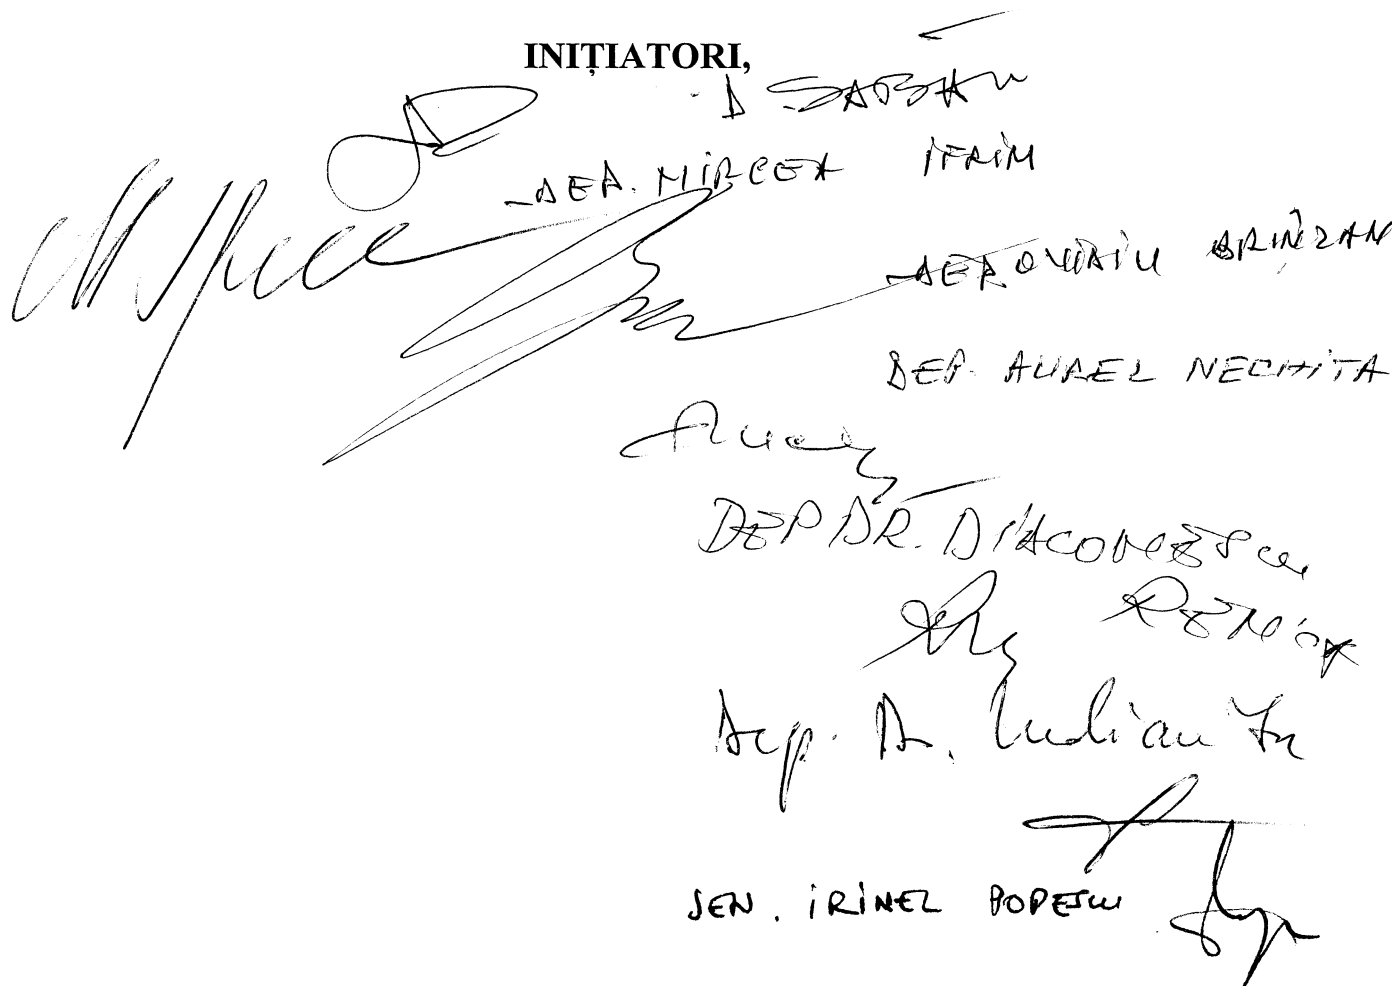 INIȚIATORI,
D SABĂU
DEP. MIRCEA IFRIM
DEP OVIDIU BRÎNZAN
DEP. AUREL NECHITA
DEP DR. DIACONESCU
RENIȚA
Dep. Dr. Iulian
SEN. IRINEL POPESCU